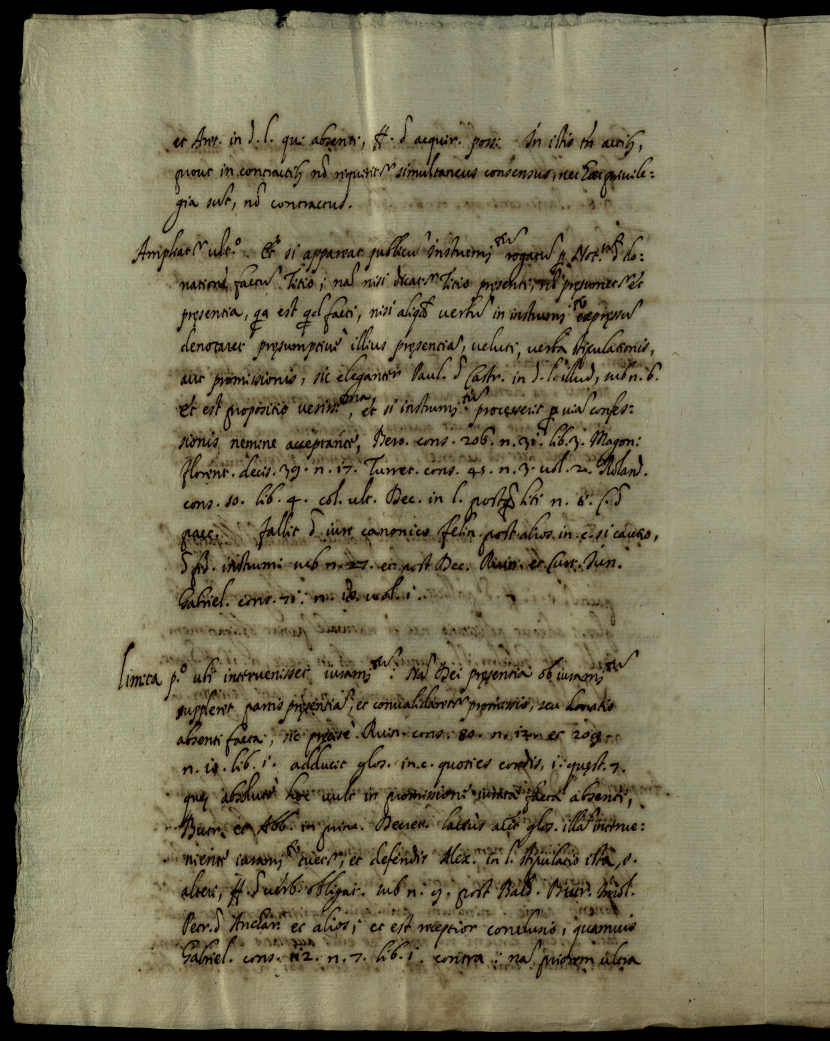 et Ant. in d. l. qui absenti, ff. d acquir. poss: In istis tn̄ actib,
prout in contractib nō requirit simultaneus consensus, nec priuile=
gia sut, nō contractus.
Ampliat ult.º Et si appareat publicū Instrum.tū rogatū p Not. d do=
nationē factū Titio; nā nisi dicat Titio presenti, presumeret ei
presentia, qa est qd facti, nisi aliqd verbū in instrum.to expressū
denotaret presumptiuè illius presentiā, veluti, verba stipulationis,
aut promissionis, sic eleganter Paul. d Castr. in d. l. illud, sub n. 6.
et est propositio verissima, et si instrum.tū processerit p viā confes=
sionis nemine acceptante, Bero. cons. 206. n. 31. lib. 3. Magon:
florent. decis. 39. n. 17. Turret. cons. 45. n. 3. vol. 2. Roland.
cons. 10. lib. 4. col. ult. Dec. in l. postq̄ liti n. 8. C. d
pact. fallit d iure canonico felin. post alios. in. c. si cautio,
d fid. instrum: sub n. 27. et post Dec. Ruin. et Curt. Jun.
Gabriel. cons. 71. n. 18. vol. 1.
Limita p.º ubi interuenisset iuram.tū: Nā Dei presentia ob iuram.tū
suppleret partis presentiā, et conualidaret promissio, seu donatio
absenti facta, sic precisè Ruin. cons. 80. n. 12. et
n. 10. lib. 1. adducit glos. in. c. quoties cordis, 1. quest. 7.
que absolutè hoc vult in promissioni iurata facta absenti,
Butr. et Abb. in prin. Decret. latius alit glos. illā interue=
niente iuram.to tuet, et defendit Alex. in l. stipulatio ista, §.
alteri, ff. d verb. obligat. sub n. 9. post Bald. Butr. Imol.
Petr. d Anchar. et alios; et est receptior conclusio, quamuis
Gabriel. cons. 112. n. 7. lib. 1. contra; nā priorem ultra